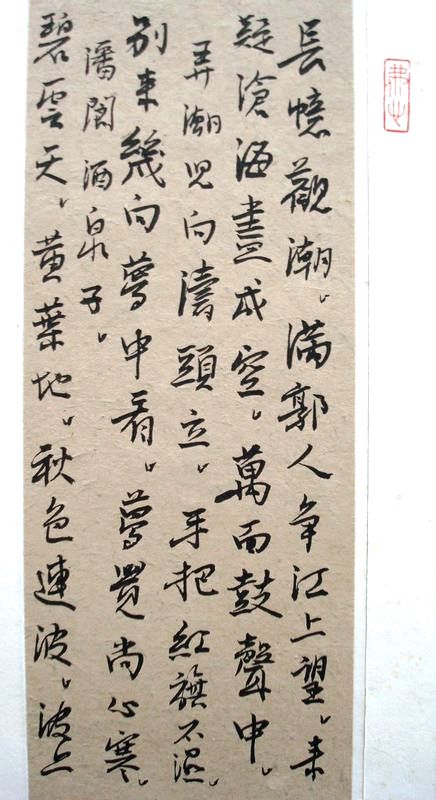 長憶觀潮、滿郭人爭江上望、來
疑滄海盡成空、萬面鼓聲中、
弄潮兒向濤頭立、手把紅旗不濕、
別來幾向夢中看、夢覺尚心寒、
潘閬酒泉子、
碧雲天、黃葉地、秋色連波、波上